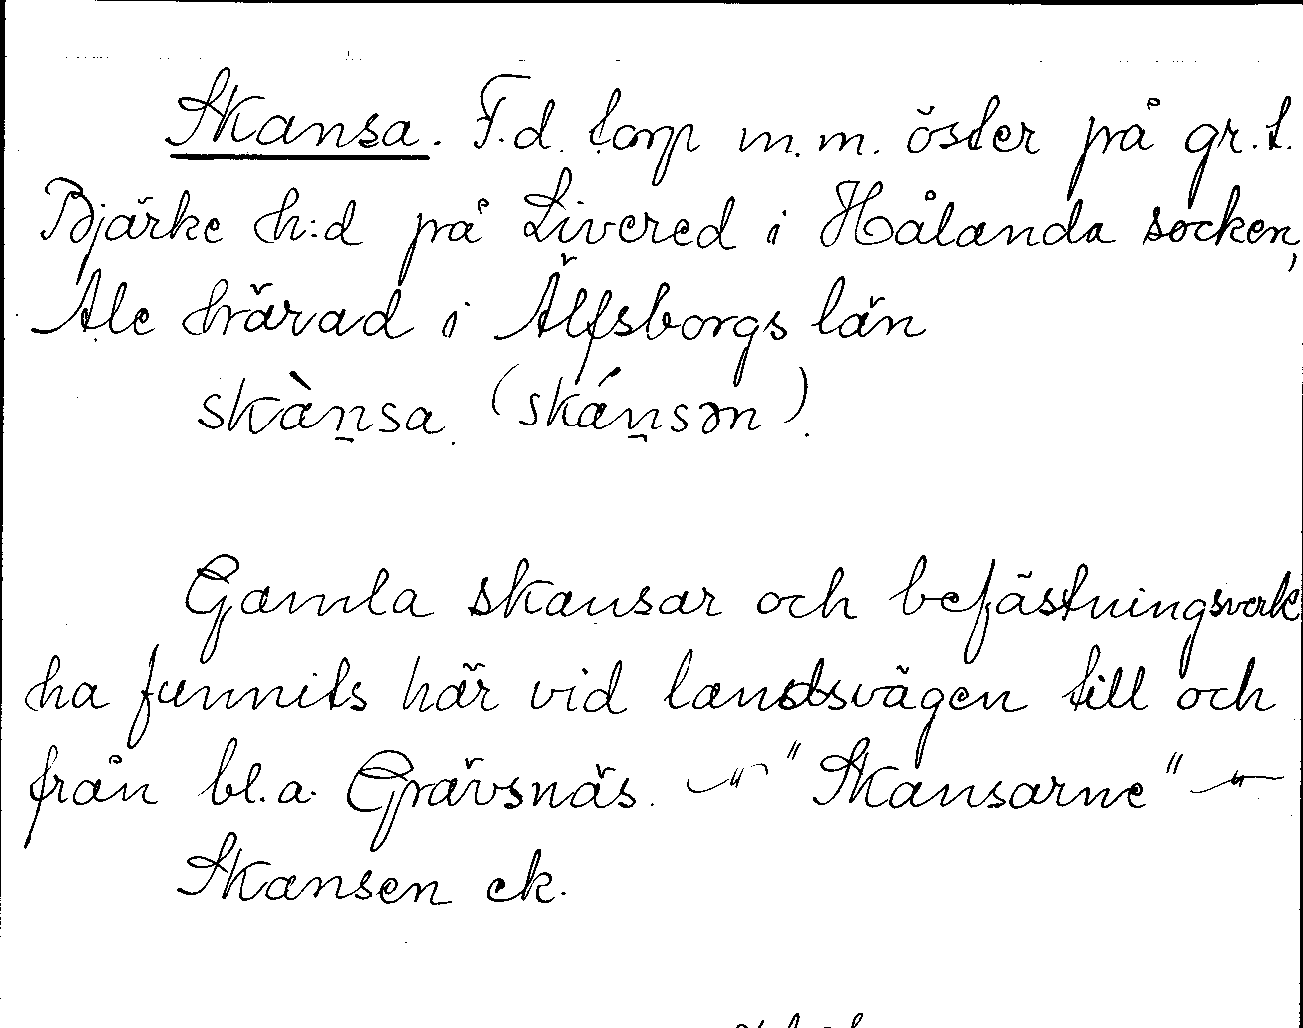 Skansa. F.d. torp m.m. öster på gr. t.
Bjärke h:d på Livered i Hålanda socken,
Ale härad i Älfsborgs län
skàn̠sa (skán̠sən).
Gamla skansar och befästningsverk
ha funnits här vid landsvägen till och
från bl.a. Grävsnäs. —"— "Skansarne" —"—
Skansen ek.